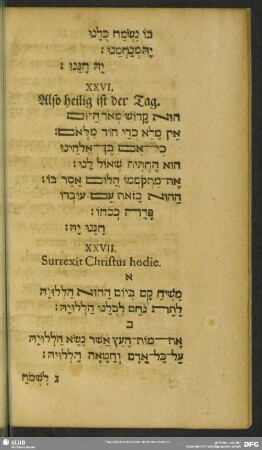 בו נשמח כלנו
יה
יה חננו :
XXVI.
Also heilig ist der Tag.
הוא קדוש מאד היום
אין מלא כדי הוד מלאם :
כי אם בן אלהינו
הוא החתית שאול לנו :
אסר בו :
ההוא בזאת עם עובדו
חננו יה :
XXVII.
Surrexit Christus hodie.
א
משיח קם ביום ההוא הללויה
לכלנו הללויה :
ב
את מות העץ אשר נשא הללויה
על כל אדם וחטאה הללויה :
ג לשמח
SLUB
DFG